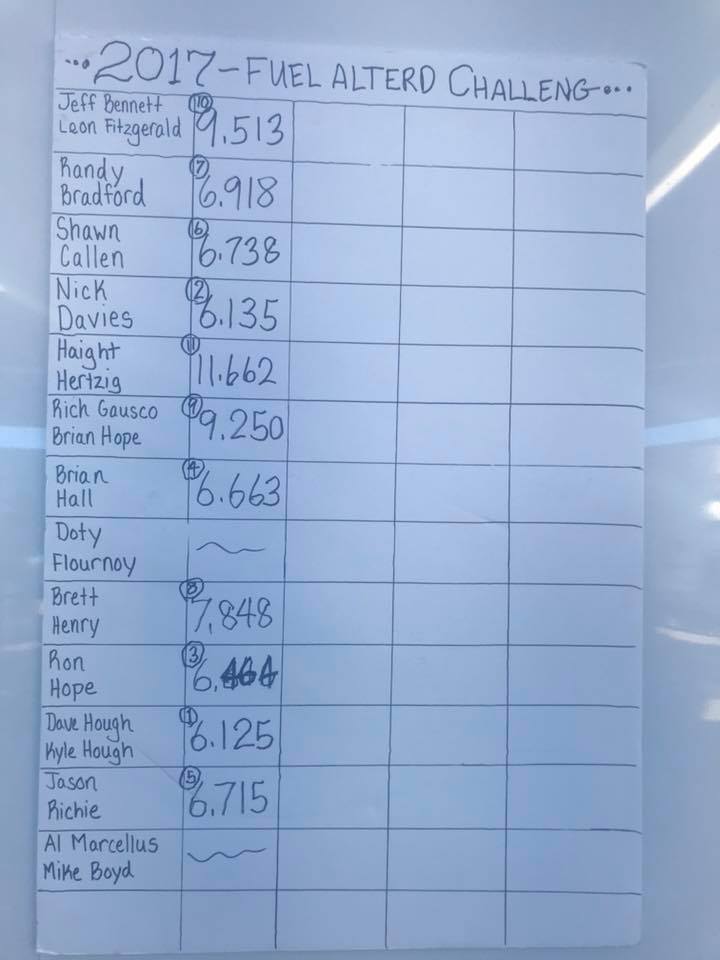 ...2017-FUEL ALTERD CHALLENG...
Jeff Bennett
Leon Fitzgerald
10
9.513
Randy
Bradford
7
6.918
Shawn
Callen
6
6.738
Nick
Davies
2
6.135
Haight
Hertzig
11
11.662
Rich Gausco
Brian Hope
9
9.250
Brian
Hall
4
6.663
Doty
Flournoy
Brett
Henry
8
7.848
Ron
Hope
3
Dave Hough
Kyle Hough
1
6.125
Jason
Richie
5
6.715
Al Marcellus
Mike Boyd